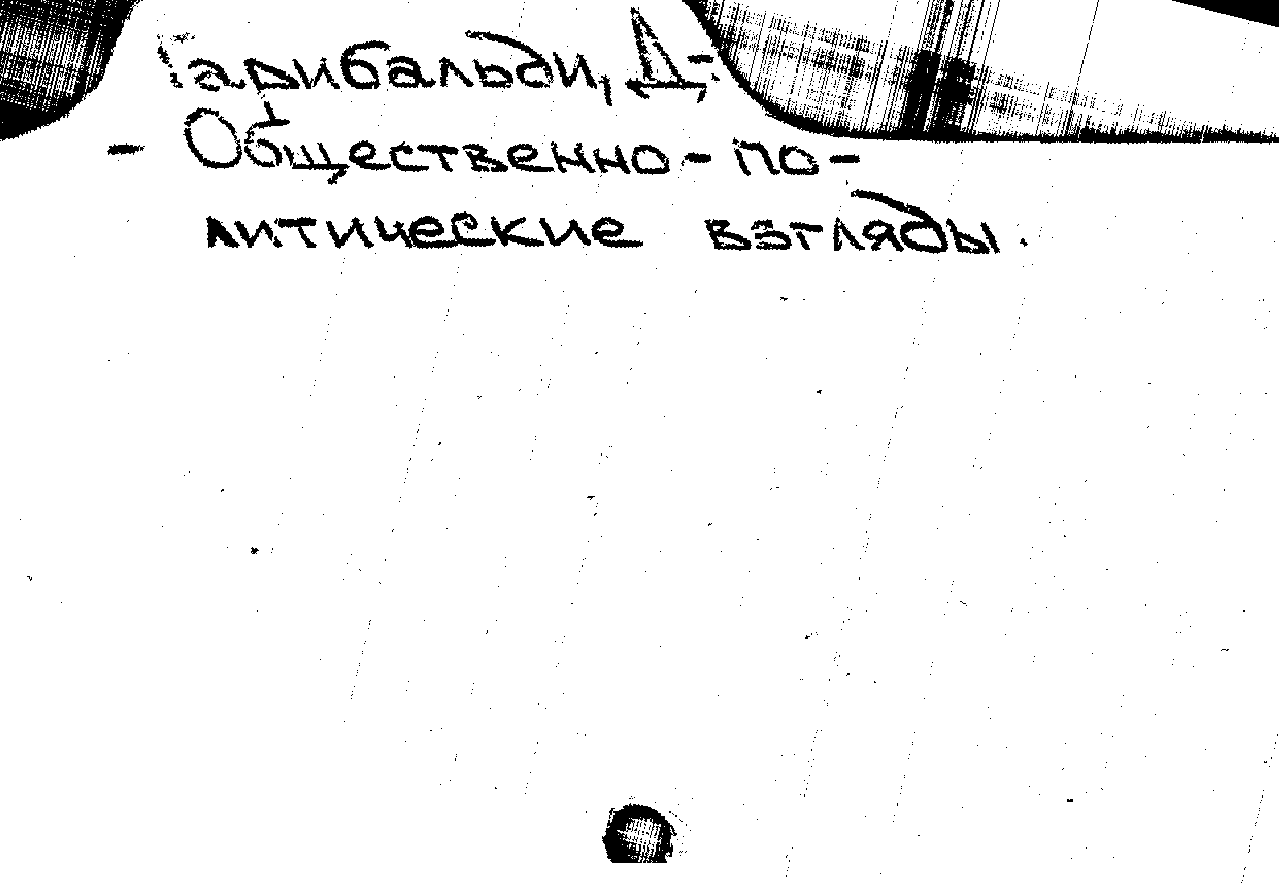 Гарибальди, Д-
- Общественно-по-
литические взгляды.